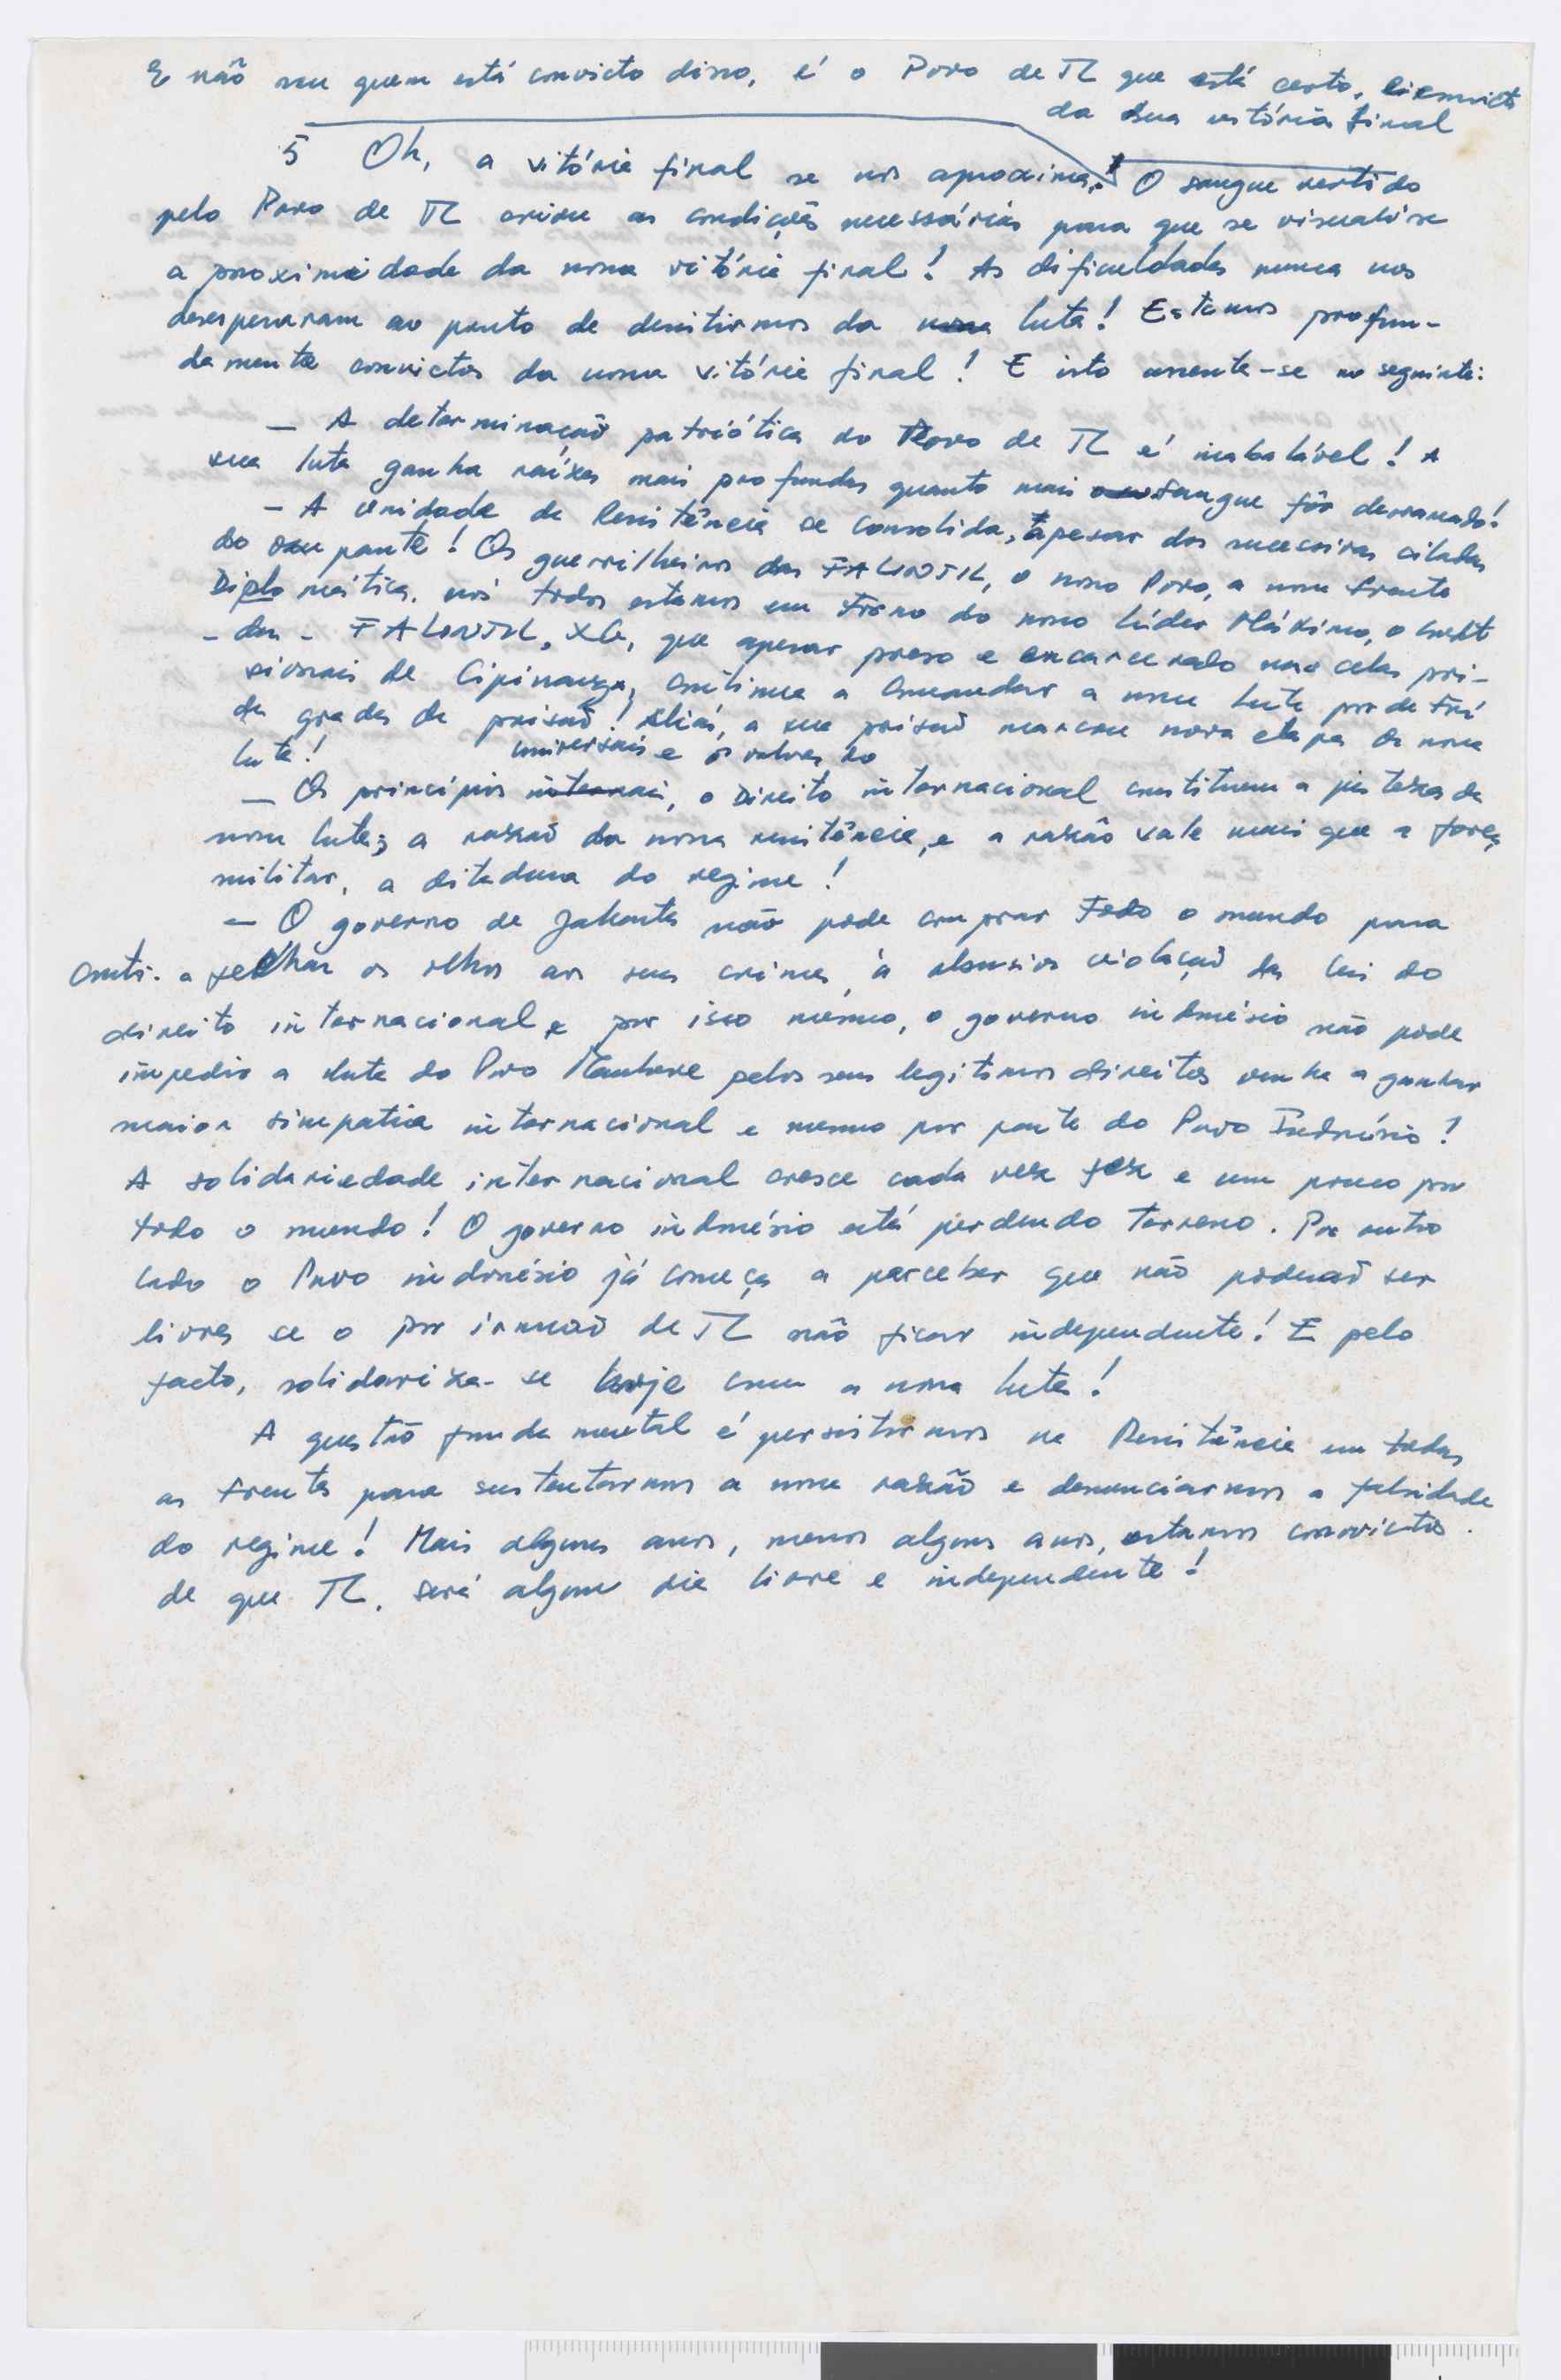 E não sou quem está convicto disso, é o Povo de TL que está certo, e convicto
da sua vitória final
5 Oh, a vitória final se nos aproxima! O sangue vertido
pelo Povo de TL criou as condições necessárias para que se visualise
a proximidade da nossa vitória final! As dificuldades nunca nos
desesperaram ao ponto de desistirmos da luta! Estamos profun-
damente convictos da nossa vitória final! E isto assenta-se no seguinte:
— A determinação patriótica do Povo de TL é inabalável! A
sua luta ganha raízes mais profundas quanto mais sangue fôr derramado!
- A unidade de Resistência se consolida, apesar das sucessivas ciladas
do ocupante! Os guerrilheiros das FALINTIL, o nosso Povo, a nossa Frente
Diplomática, nós todos estamos em torno do nosso Líder Máximo, o Cmdt
- das - FALINTIL, XG, que apesar preso e encarcerado nas celas pri-
sionais de Cipinang, continua a comandar a nossa luta por detrás
das grades da prisão! Aliás, a sua prisão marcou nova etapa da nossa
luta!
universais e os valores do
— Os princípios, o Direito internacional constituem a justeza da
nossa luta; a razão da nossa resistência, e a razão vale mais que a força
militar, a ditadura do regime!
— O governo de Jakarta não pode comprar todo o mundo para
conti. a fechar os olhos aos seus crimes, à abusiva violação da lei do
direito internacional e por isso mesmo, o governo indonésio não pode
impedir a luta do Povo Maubere pelos seus legítimos direitos venha a ganhar
maior simpatia internacional e mesmo por parte do Povo Indonésio!
A solidariedade internacional cresce cada vez e um pouco por
todo o mundo! O governo indonésio está perdendo terreno. Por outro
lado o Povo indonésio já começa a perceber que não poderão ser
livres se o por irmão de TL não ficar independente! E pelo
facto, solidariza-se hoje com a nossa luta!
A questão fundamental é persistirmos na Resistência em todas
as frentes para sustentarmos a nossa razão e denunciarmos a falsidade
do regime! Mais alguns anos, menos alguns anos, estamos convictos
de que TL, será algum dia livre e independente!